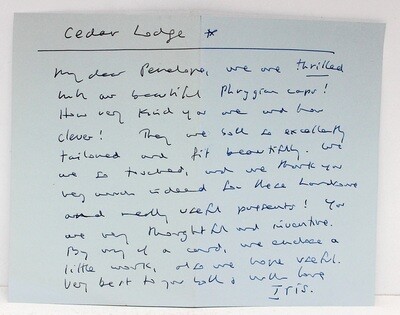 Cedar Lodge *
My dear Penelope, we are thrilled
with our beautiful Phrygian caps!
How very kind you are and how
clever! They are both so excellently
tailored and fit beautifully. We
are so touched, and we thank you
very much indeed for these handsome
and really useful presents! You
are very thoughtful and inventive.
By way of a card, we enclose a
little work, also we hope useful.
Very best to you both & with love
Iris.